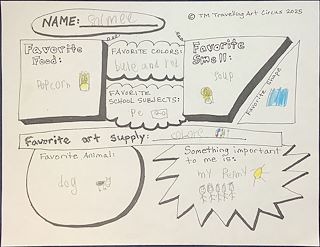 NAME: Salmee
© TM Travelling Art Circus 2025
Favorite Food:
Popcorn
FAVORITE COLORS:
bule and red
FAVORITE SCHOOL SUBJECTS:
PE
Favorite Smell:
soup
Favorite Shape
Favorite art supply: colors
Favorite Animal:
dog
Something important to me is:
my Famy